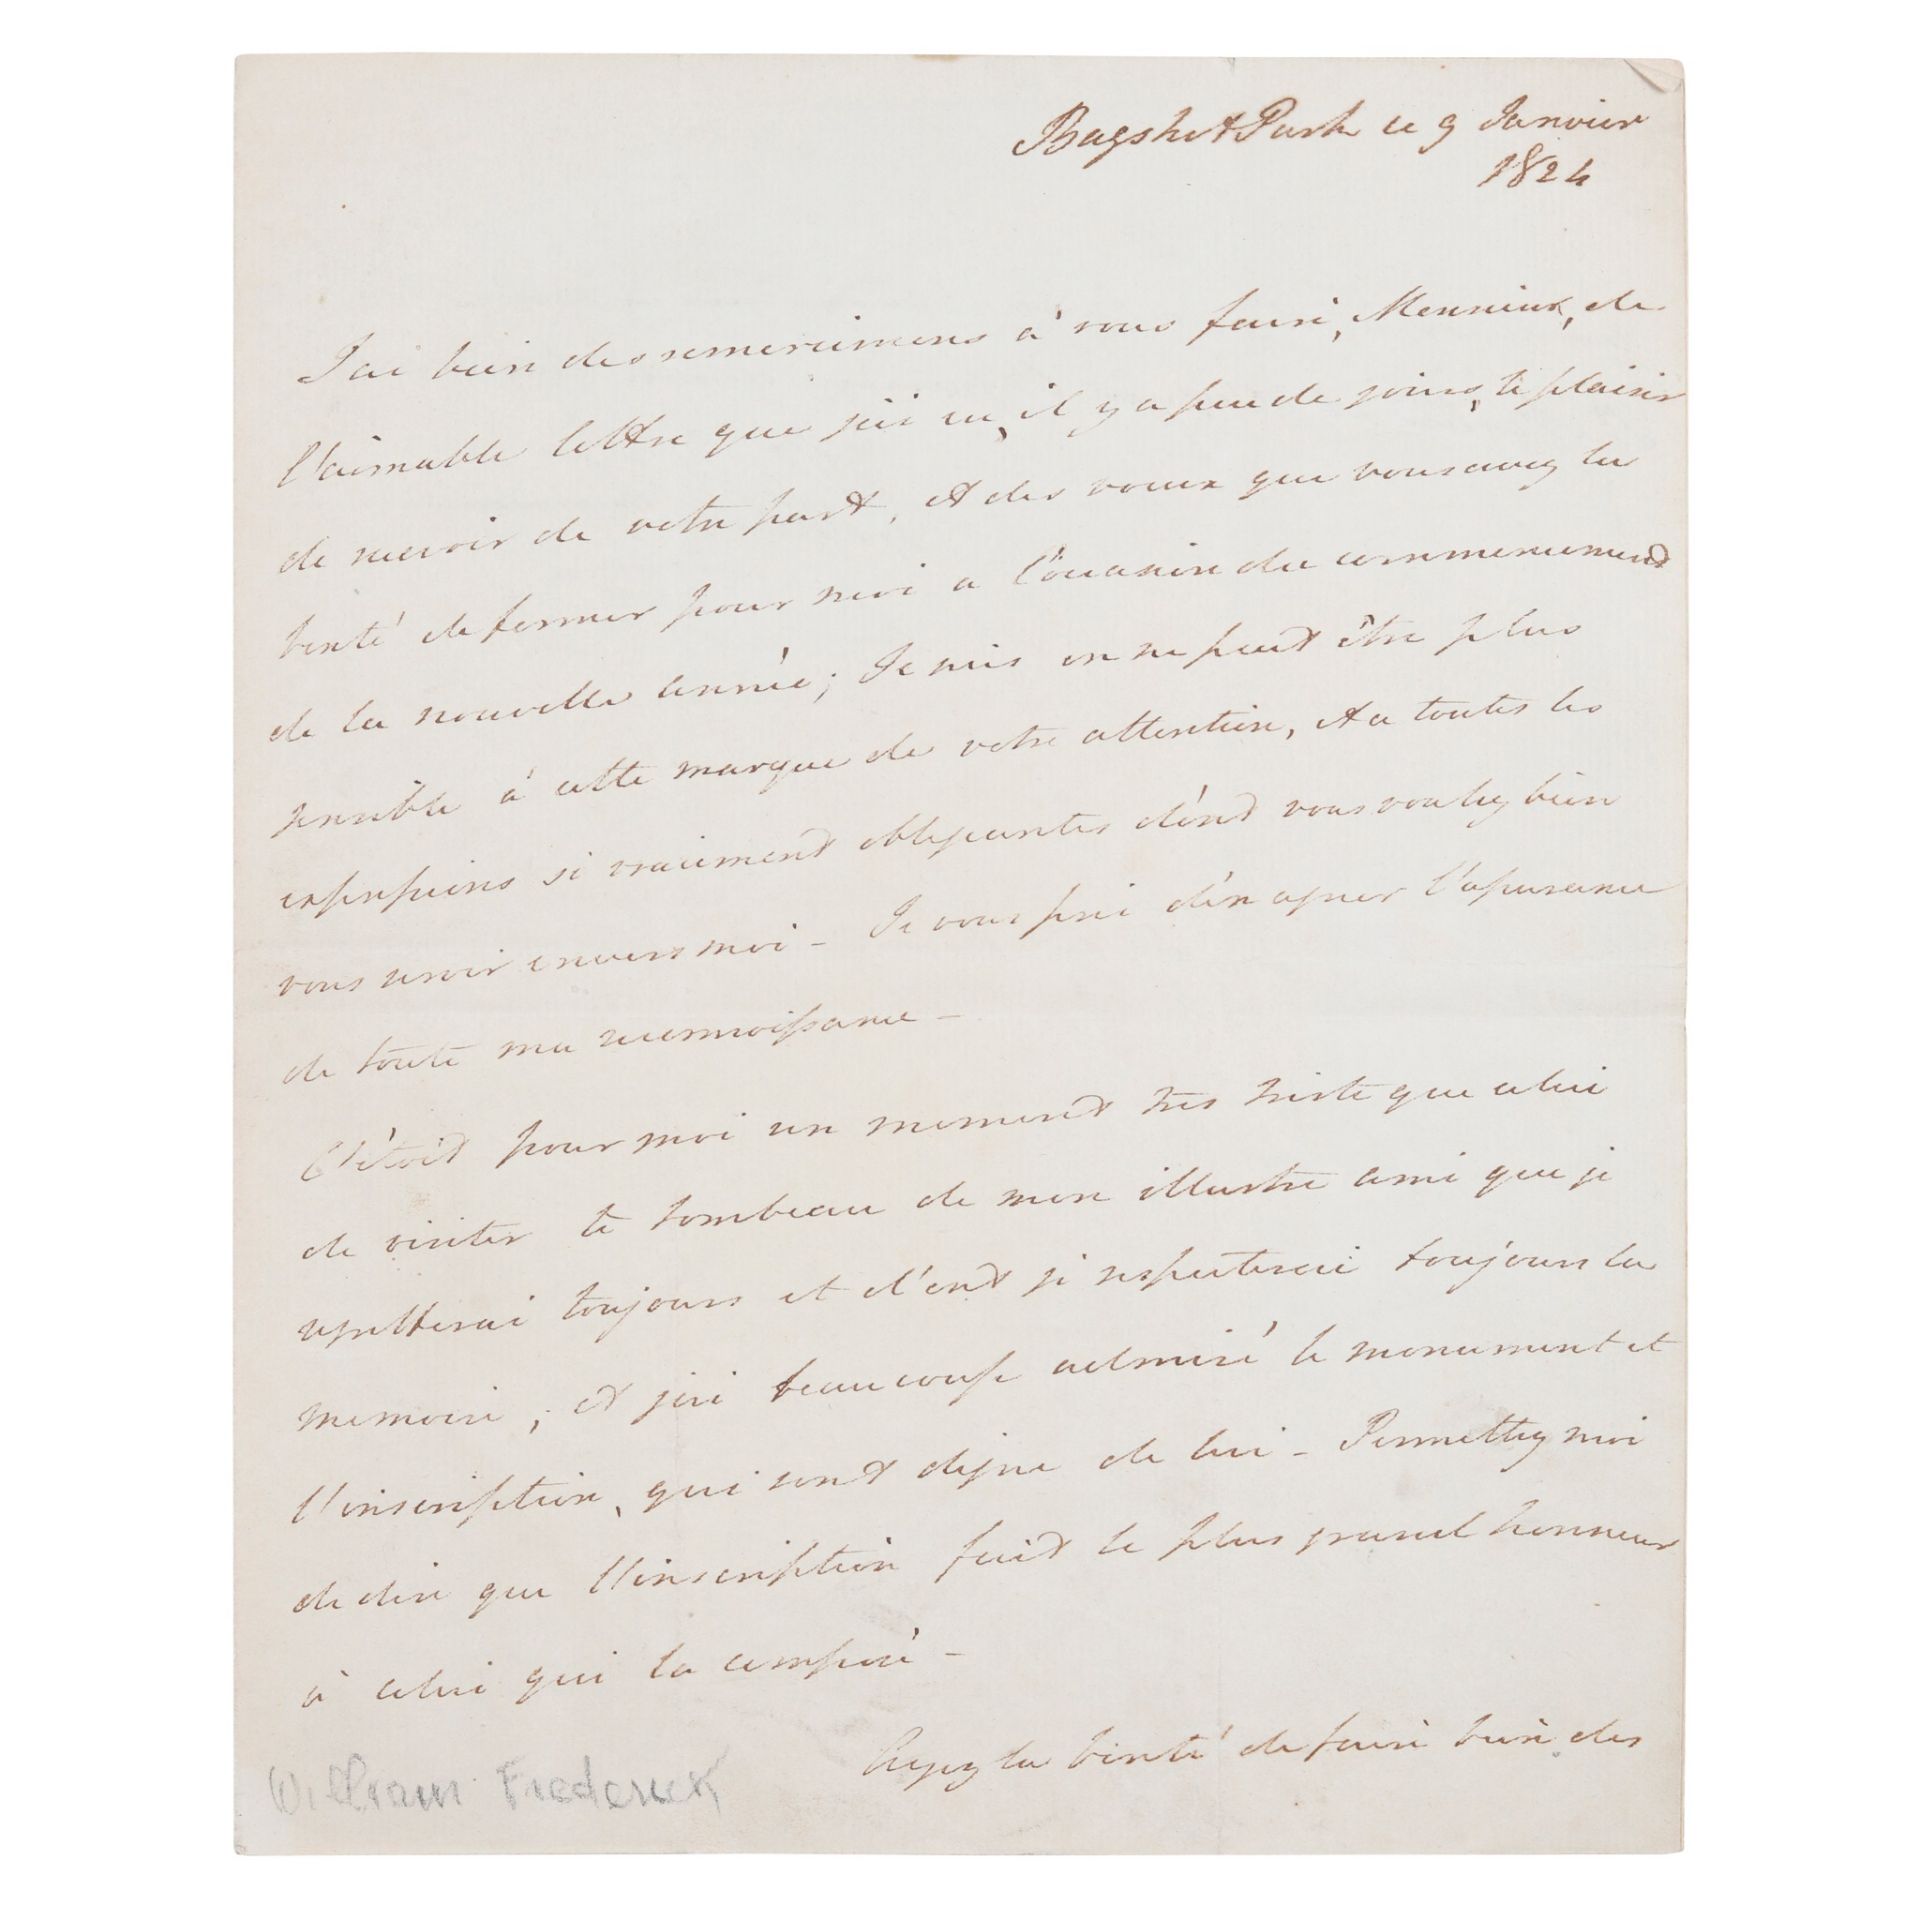 Bagshot Park ce 9 Janvier
1824
J'ai bien des remercimens à vous faire, Monsieur, de
l'aimable lettre que j'ai eu, il y a peu de jours, le plaisir
de recevoir de votre part, et des voeux que vous avez la
bonté de former pour moi a l'occasion du commencement
de la nouvelle année; Je suis on ne peut être plus
sensible à cette marque de votre attention, et a toutes les
expressions si vraiment obligeantes dont vous voulez bien
vous servir envers moi - Je vous prie d'en agréer l'assurance
de toute ma reconnoissance -
C'étoit pour moi un moment très triste que celui
de visiter le tombeau de mon illustre ami que je
regretterai toujours et d'ont je respecterai toujours la
memoire; et j'ai beaucoup admiré le monument et
l'inscription, qui sont digne de lui - Permettez moi
de dire que l'inscription fait le plus grand honneur
à celui qui la composé -
Ayez la bonté de faire bien des
William Frederick